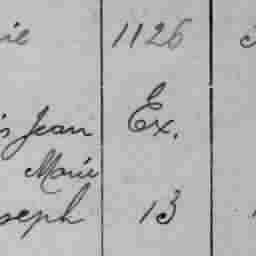 ie 1126
s Jean Ex.
Marie
oseph 13